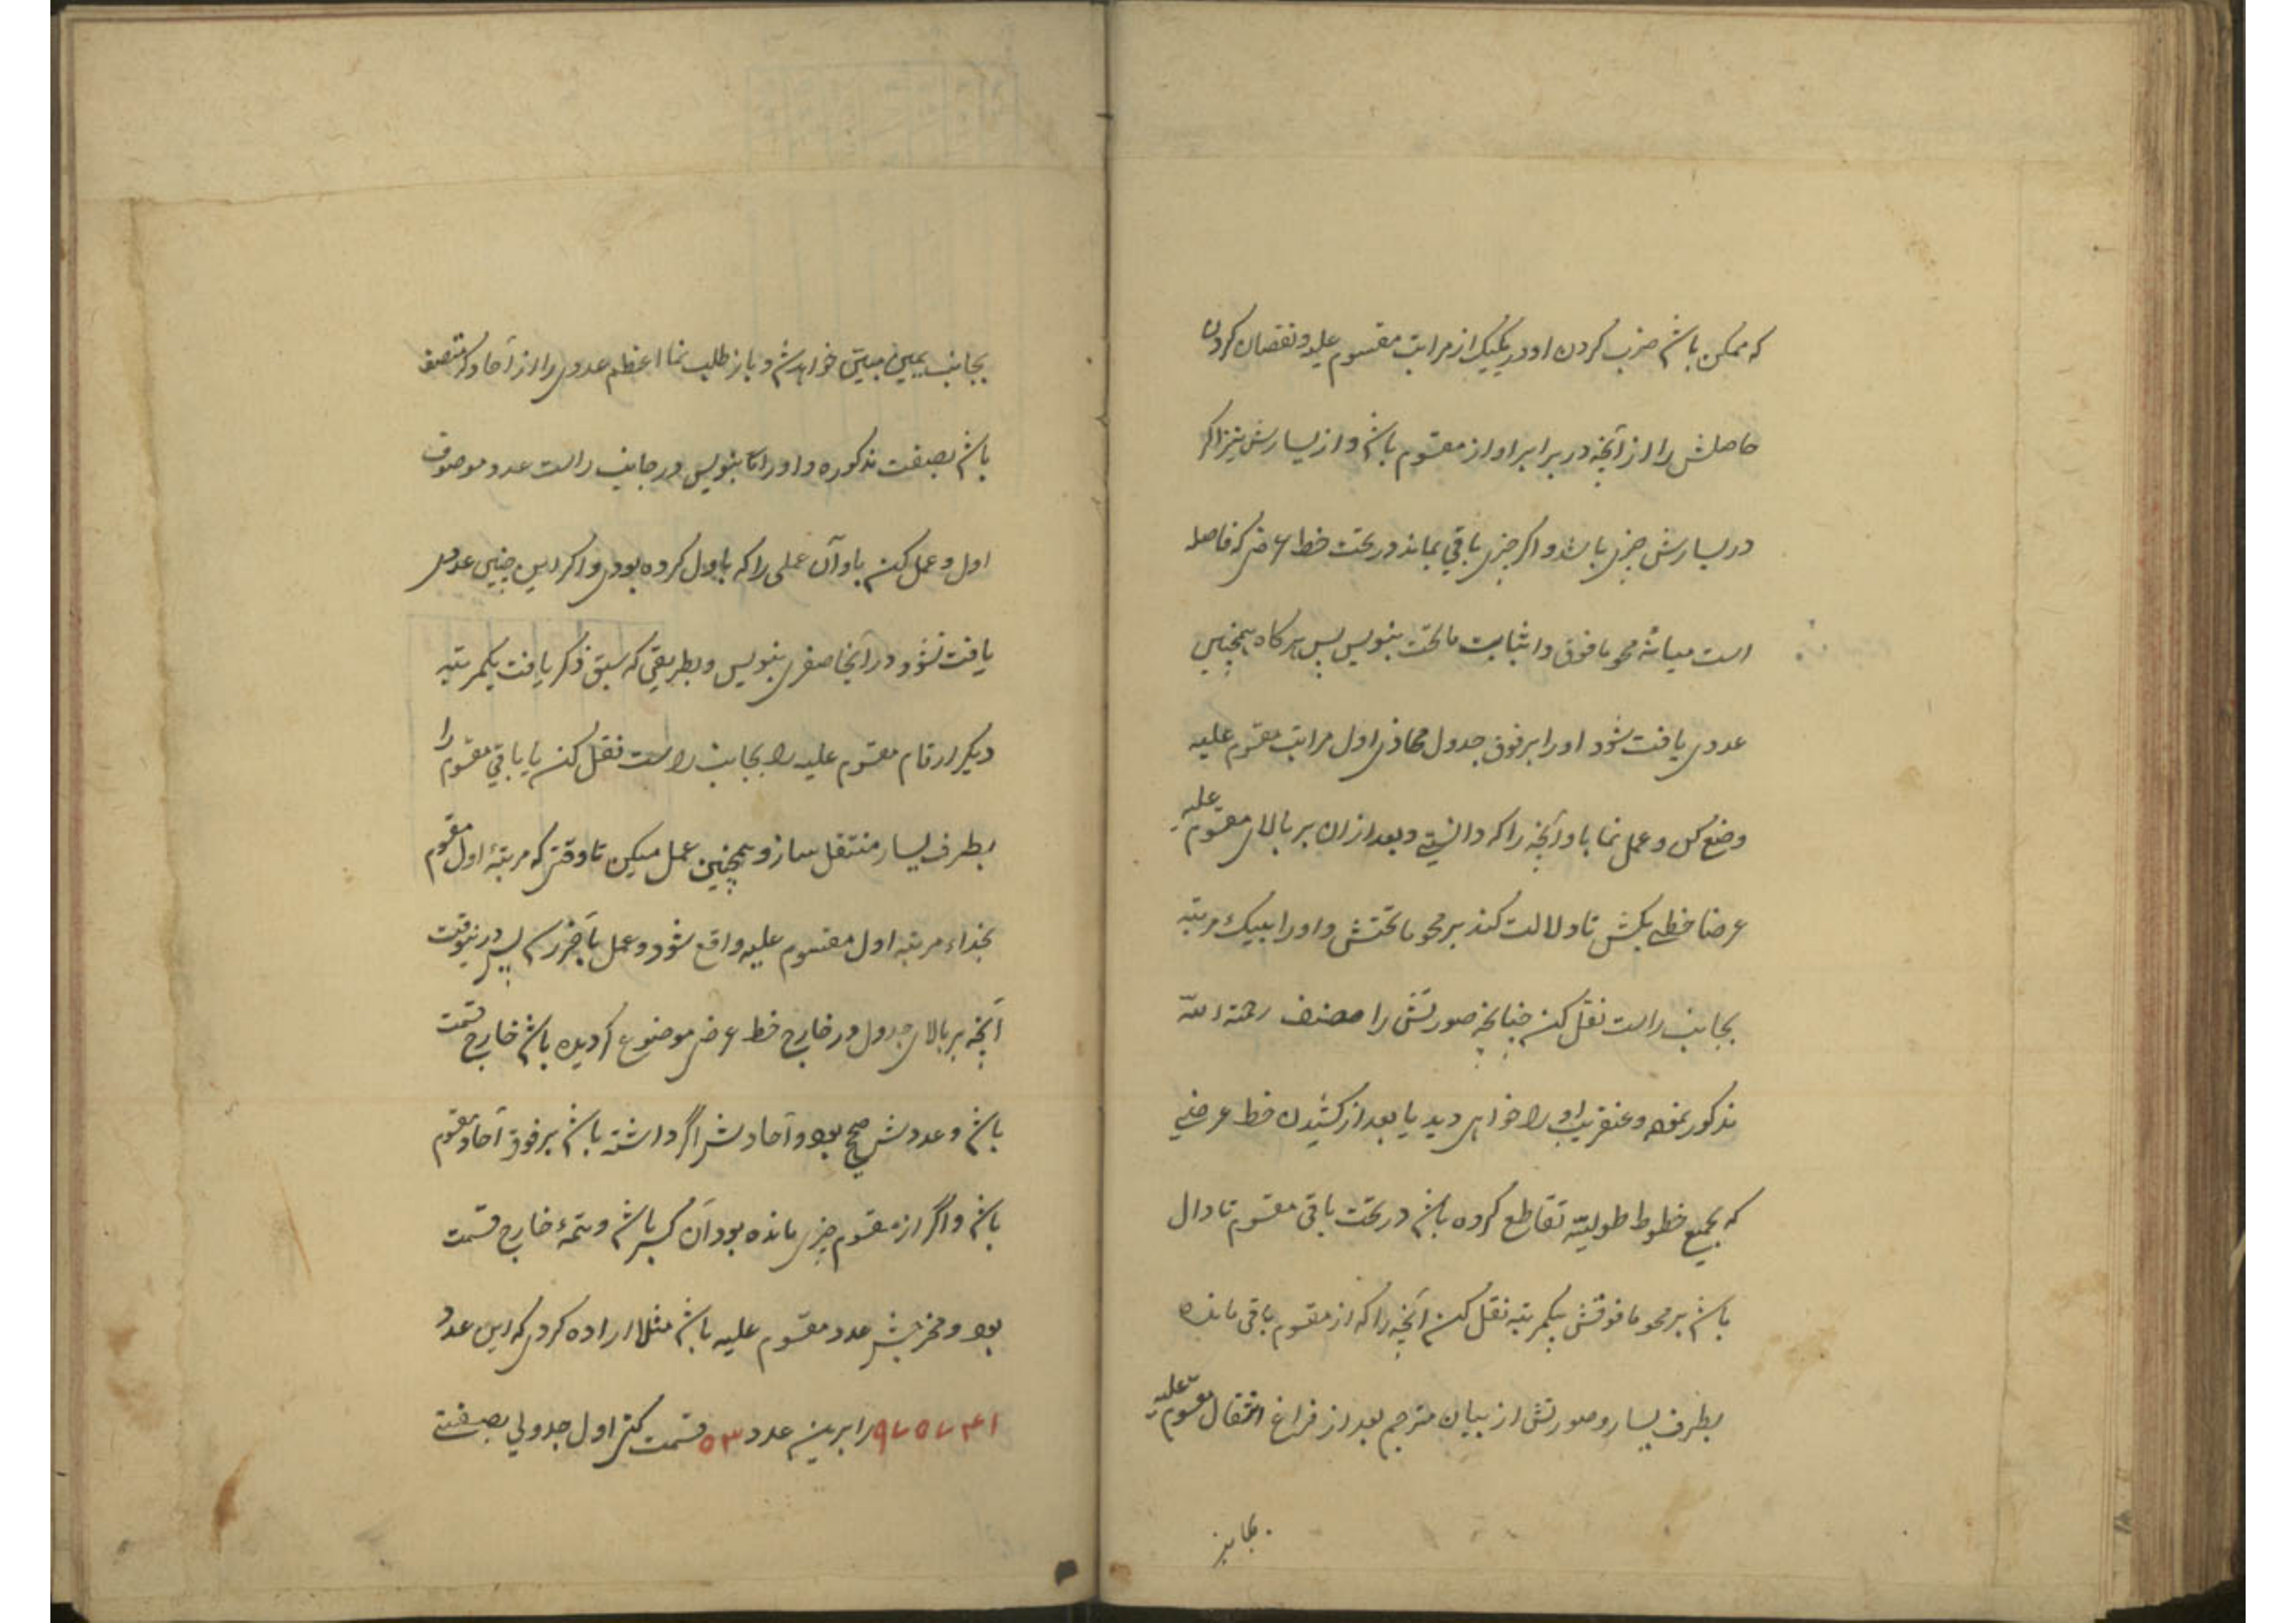 که ممکن باشد ضرب کردن او در یکیک از مراتب مقسوم علیه و نقصان کردن
حاصلش را از آنچه در برابر او از مقسوم باشد و از یسارش نیز اگر
در یسارش چیزی باشد و اگر چیزی باقی بماند در تحت خط عرضی که فاصله
است میانهٔ محو ما فوق و اثبات ما تحت بنویس پس هر کاه همچنین
عددی یافت شود او را بر فوق جدول محاذی اول مراتب مقسوم علیه
وضع کن و عمل نما با او آنچه را که دانستی و بعد از ان بر بالای مقسوم علیه
عرضا خطی بکش تا دلالت کند بر محو ما تحتش و او را بیک مرتبه
بجانب راست نقل کن چنانچه صورتش را مصنف رحمة الله
مذکور نموده و عنقریب او را خواهی دید یا بعد از کشیدن خط عرضی
که بجمیع خطوط طولیّه تقاطع کرده باشد در تحت باقی مقسوم تا دال
باشد بر محو ما فوقش بیکمرتبه نقل کن آنچه را که از مقسوم باقی مانده
بطرف یسار و صورتش از بیان مترجم بعد از فراغ انتقال مقسوم علیه
بجانب
بجانب یمین مبیّن خواهد شد و باز طلب نما اعظم عددی را از آحاد که متصف
باشد بصفت مذکوره و او را بنویس در جانب راست عدد موصوف
اول و عمل کن با او آن عملی را که باول کرده بودی و اگر این چنین عددی
یافت نشود در آنجا صفری بنویس و بطریقی که سبق ذکر یافت یکمرتبه
دیگر ارقام مقسوم علیه را بجانب راست نقل کن یا باقی مقسوم را
بطرف یسار منتقل ساز و همچنین عمل میکن تا وقتی که مرتبهٔ اول مقسوم
بحذاء مرتبه اول مقسوم علیه واقع شود و عمل بآخر رسد پس درینوقت
آنچه بر بالای جدول در خارج خط عرضی موضوع گردیده باشد خارج قسمت
باشد و عددش صحیح بود و آحادش اگر داشته باشد بر فوق آحاد مقسوم
باشد و اگر از مقسوم چیزی مانده بود آن کسر باشد و تتمهٔ خارج قسمت
بود و مخرجش عدد مقسوم علیه باشد مثلا اراده کردی که این عدد
۹۷۵۷۴۱ را برین عدد ۵۳ قسمت کنی اول جدولی بصفتی